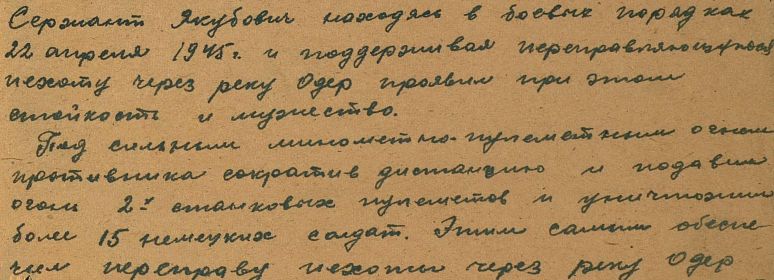 Сержант Якубович находясь в боевых порядках
22 апреля 1945г. и поддерживая переправляющуюся
пехоту через реку Одер проявил при этом
стойкость и мужество.
Под сильным минометно-пулеметным огнем
противника сократив дистанцию и подавил
огонь 2х станковых пулеметов и уничтожил
более 15 немецких солдат. Этим самым обеспе
чил переправу пехоты через реку Одер